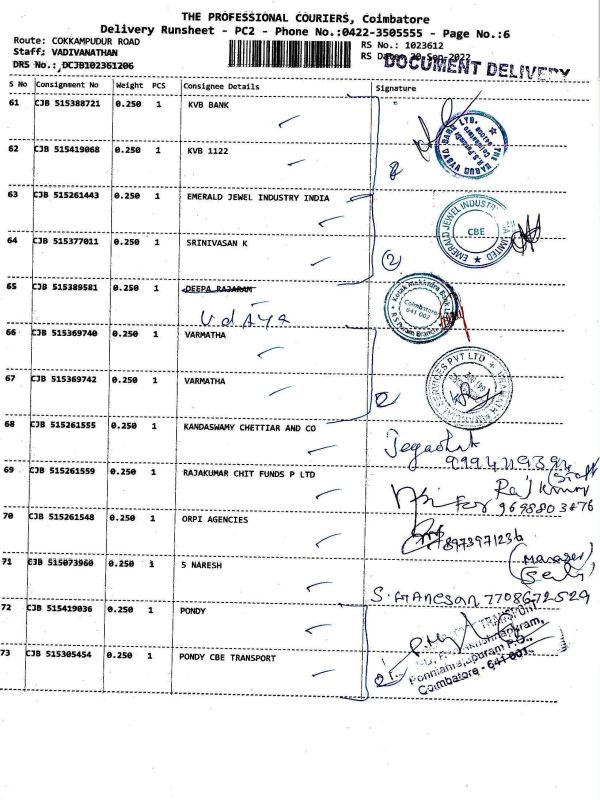 THE PROFESSIONAL COURIERS, Coimbatore
Delivery Runsheet - PC2 - Phone No.:0422-3505555 - Page No.:6
Route: COKKAMPUDUR ROAD
RS No.: 1023612
Staff: VADIVANATHAN
RS Date: 20-Sep-2022
DOCUMENT DELIVERY
DRS No.: DCJB102361206
S No Consignment No Weight PCS Consignee Details Signature
61 CJB 515388721 0.250 1 KVB BANK
62 CJB 515419068 0.250 1 KVB 1122
63 CJB 515261443 0.250 1 EMERALD JEWEL INDUSTRY INDIA
EMERALD JEWEL INDUSTRY
LIMITED
CBE
64 CJB 515377011 0.250 1 SRINIVASAN K
2
65 CJB 515389581 0.250 1 DEEPA RAJARAM
Udaya
Kotak Mahindra Bank
Coimbatore
641 002
R S Puram Branch
66 CJB 515369740 0.250 1 VARMATHA
67 CJB 515369742 0.250 1 VARMATHA
SERVICES PVT LTD
2
68 CJB 515261555 0.250 1 KANDASWAMY CHETTIAR AND CO
69 CJB 515261559 0.250 1 RAJAKUMAR CHIT FUNDS P LTD
(Staff)
For Raj Kumar
9698803476
70 CJB 515261548 0.250 1 ORPI AGENCIES
8973971236
(Manager)
71 CJB 515073960 0.250 1 S NARESH
S. GANESAN 7708672529
72 CJB 515419036 0.250 1 PONDY
TRANSPORT
73 CJB 305454 0.250 1 PONDY CBE TRANSPORT
Ponnaiahrajapuram P.O.,
Coimbatore - 641 001.